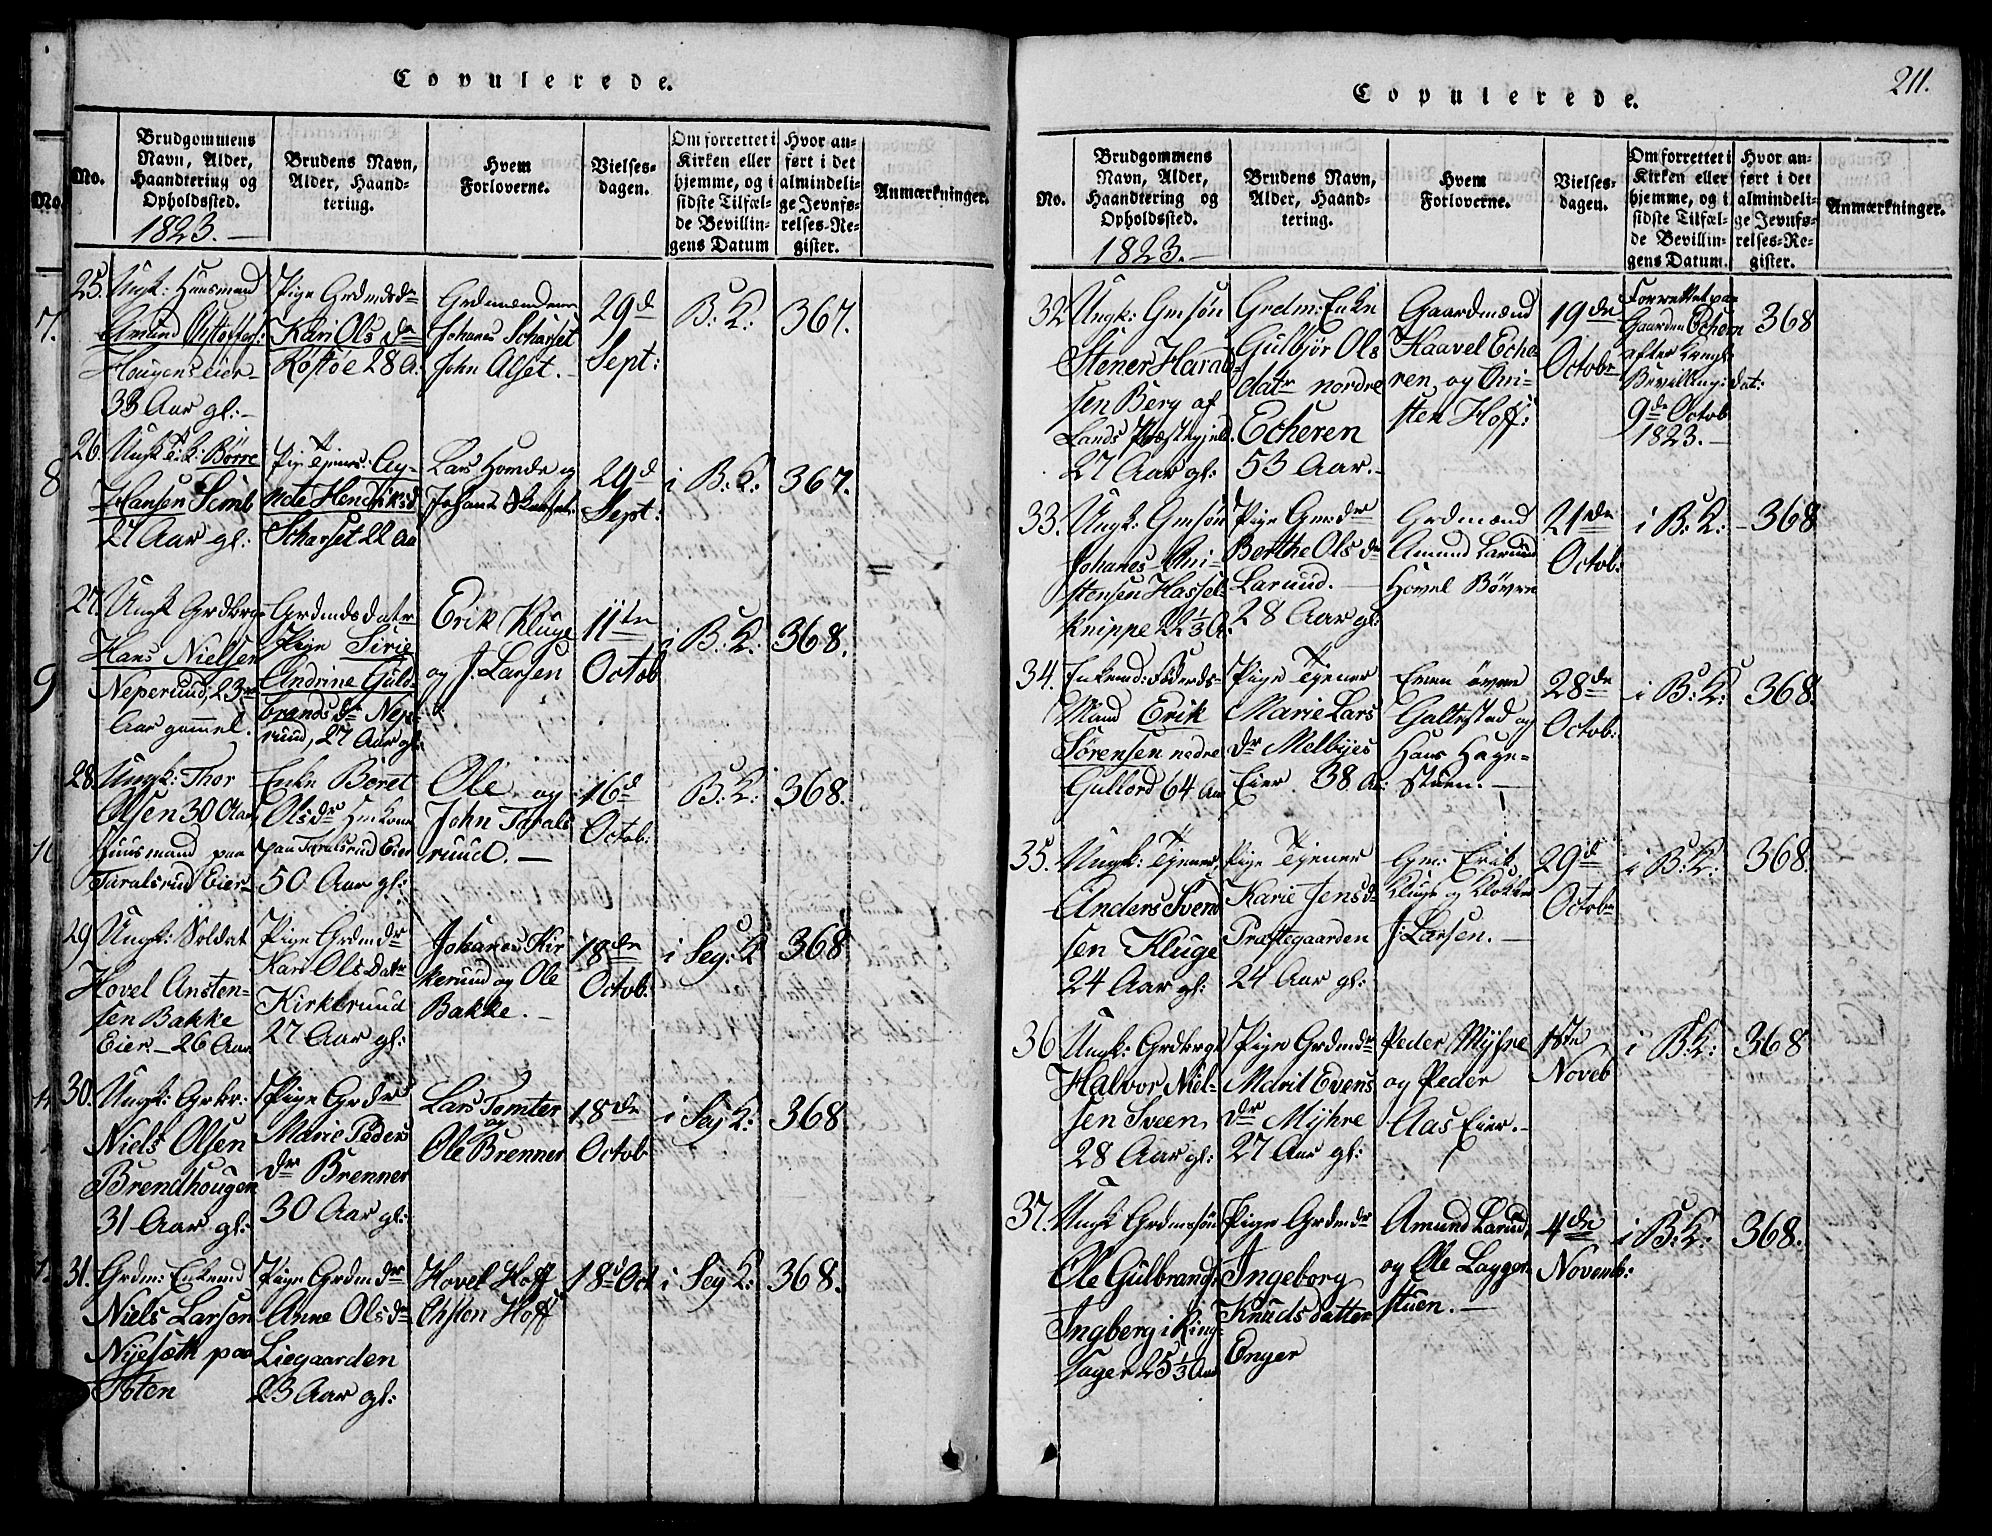 Copulerede.
No.
Brudgommens
Navn, Alder,
Haandtering og
Opholdssted.
1823.
Brudens Navn,
Alder, Haand-
tering.
Hvem
Forloverne.
Vielses-
dagen.
Om forrettet i
Kirken eller
hjemme, og i
sidste Tilfæl-
de Bevillin-
gens Datum
Hvor an-
ført i det
almindeli-
ge Jevnfø-
relses-Re-
gister.
Anmærkninger.
25.
Ungk: Huusmand
Amund
Hougenseier
33 Aar gl:
Pige Grdmdsdr
Kari Olsdr
Røstøe 28 A.
Grdmændene
Johanes Scharset
John Alset.
29d
Sept:
B: K:
367.
26.
Ungk: Børre
Hansen Simb
27 Aar gl:
Pig: Tjener: Ag-
nete Henriksd
Scharset 22 Aa
Lars Homde og
Johanes Skarset.
29d
Sept:
i B: K:
367.
27.
Ungk Grdbrg
Hans Nielsen
Neperud, 23
Aar gammel.
Grdmdsdatr
Pige Sirie
Andrine Guld-
brandsdr Nep-
ruud, 27 Aar gl:
Erik Kluge
og J. Larsen
11te
Octob
i B: K:
368.
28.
Ungk: Thor
Olsen 30 Aar
Huusmand paa
Taralsrud Eier
Enke Beret
Olsdr Huskone
paa Taralsrud Eier
50 Aar gl:
Ole og
John Tarals
ruud.
16d
Octob:
B: K:
368.
29
Ungk: Soldat
Hovel Ansten-
sen Bakke
Eier 26 Aar
Pige Grdmdr
Kari Olsdatr
Kirkerund
27 Aar gl:
Johanes Kir
kerund og Ole
Bakke.
18de
Octob:
i Seg: K
368
30.
Ungk: Grkr:
Niels Olsen
Brendhougen
31 Aar gl:
Pige Grdr
Marie Peders
dr Brenner
30 Aar gl:
Lars Tomter
og
Ole Brenner
18de
Octob
i Seg K:
368.
31.
Grdm: Enkemd
Niels Larsen
Nyesæth paa
Toten
Pige Grdmdr
Anne Olsdr
Liegaarden
23 Aar gl:
Hovel Hoff
Chsten Hoff
18d Oct
i Seg K:
368.
211.
Copulerede.
No.
Brudgommens
Navn, Alder,
Haandtering og
Opholdssted.
1823.
Brudens Navn,
Alder, Haand-
tering.
Hvem
Forloverne.
Vielses-
dagen.
Om forrettet i
Kirken eller
hjemme, og i
sidste Tilfæl-
de Bevillin-
gens Datum.
Hvor an-
ført i det
almindeli-
ge Jevnfø-
relses-Re-
gister.
Anmærkninger.
32
Ungk: Gmsøn
Stener Harald-
sen Berg af
Lands Præstegjeld
27 Aar gl:
Grdm: Enke
Gulbjør Ols
datr nordre
Echeren
53 Aar.
Gaardmænd
Kaavel Eche
ren, og Chri-
sten Hoff:
19de
Octobr
Forrettet paa
Gaarden Echern
efter Kongl:
Bevilling: dat:
9de Octob
1823.
368
33.
Ungk: Gmsøn
Johanes Chri-
stensen Hassel-
knippe 22 1/3 A.
Pige Grdr
Berthe Olsdr
Larund.
28 Aar gl:
Grdmænd
Amund Larund
Hovel Børre
21de
Octob:
i B: K:
368
34.
Enkemd: Føderds-
Mand Erik
Sørensen nedre
Gullord 64 Aar
Pige Tjener
Marie Lars
dr Melbyes
Eier. 38 A:
Even øvre
Galtestad og
Hans Hage-
stuen.
28de
Octob:
i B: K:
368.
35.
Ungk: Tjener
Anders Svend
sen Kluge
24 Aar gl:
Pige Tjener
Karie Jensdr
Præstegaarden
24 Aar gl:
Gm: Erik
Kluge og Klokker
J: Larsen.
29d
Octobr
i B: K:
368.
36
Ungk: Grdbrg
Halvor Niel-
sen Sveen,
28 Aar gl:
Pige Grdmdr
Marit Evens
dr Myhre
27 Aar gl:
Peder Myhre
og Peder
Aas Eier.
1ste
Noveb
i B: K:
368
37.
Ungk Grdmssøn
Ole Gulbrands
Ingberg i Ring-
sager 25 1/3 Aar
Pige Grdmdr
Ingeborg
Knudsdatter
Enger
Amund Larud,
og Ole Lagger
stuen.
4de
Novemb:
i B: K:
368.